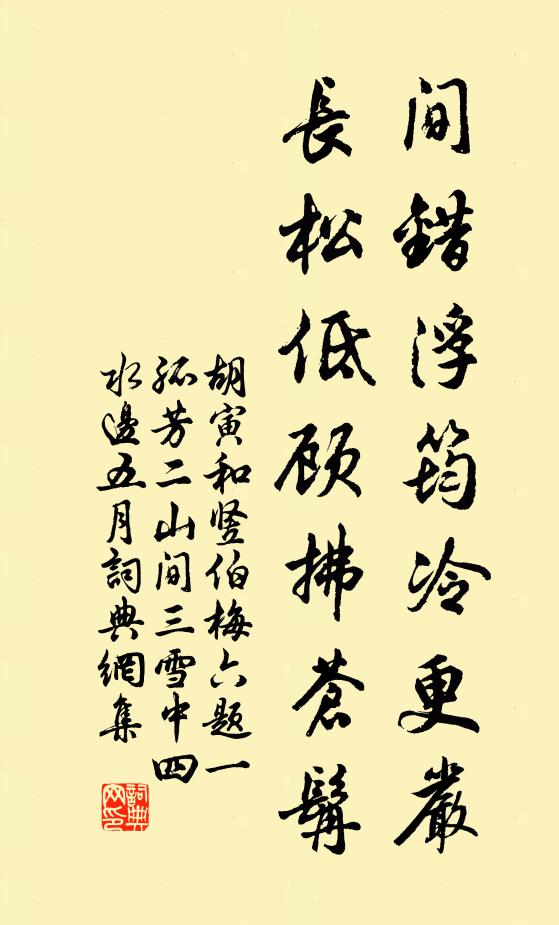 间錯浮筠冷更嚴
長松低顾拂蒼髯
胡寅和竖伯梅六题一
孤芳二山间三雪中四
水邊五月詞典網集
詞典網印